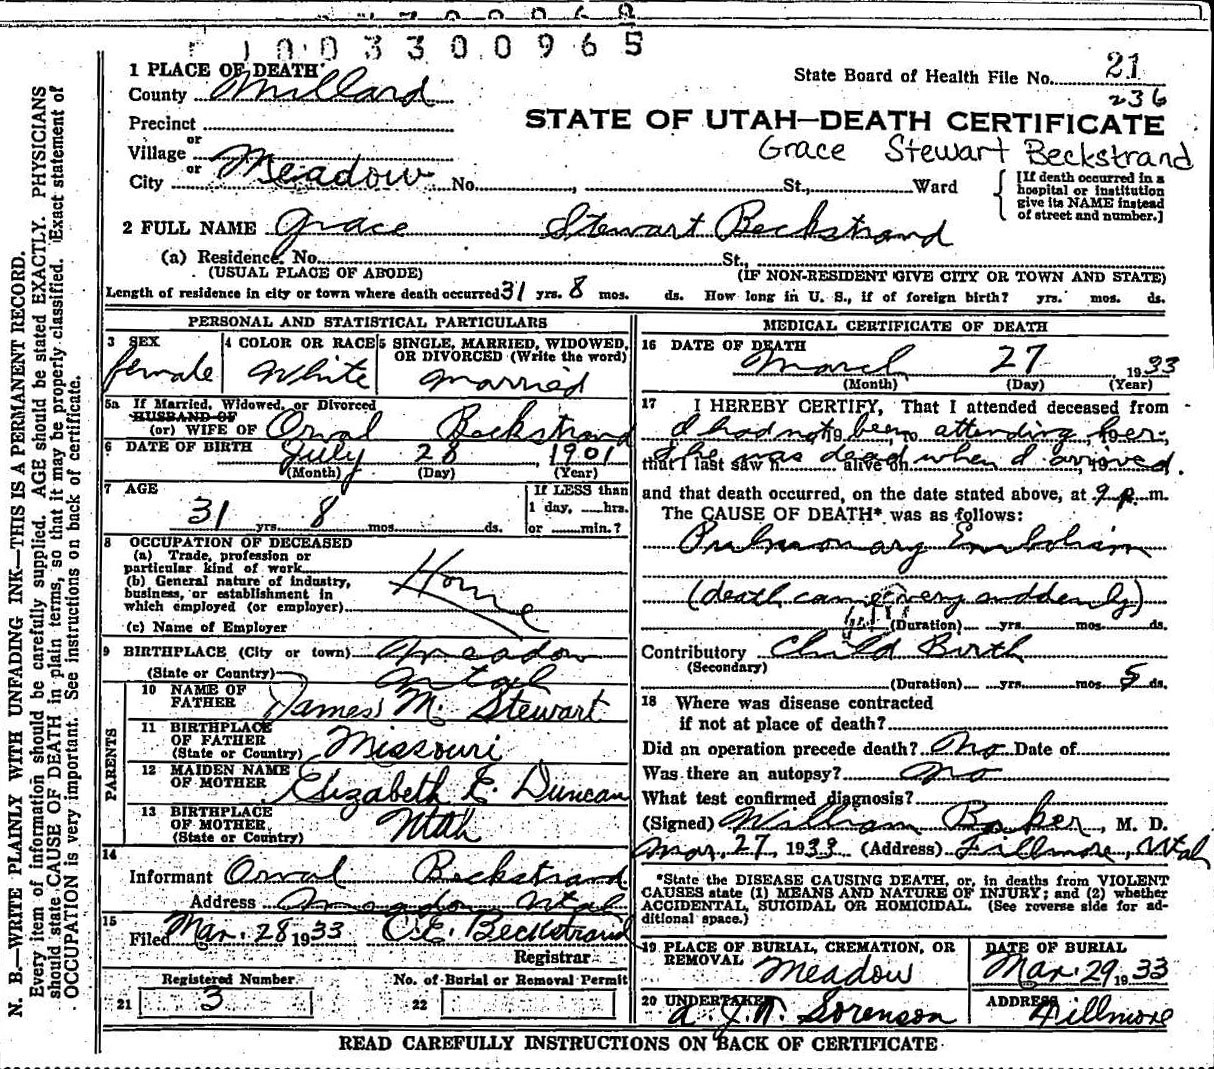 1003300965
1 PLACE OF DEATH
County Millard
State Board of Health File No. 21
236
Precinct
or
Village
or
City Meadow No. , St., Ward
STATE OF UTAH—DEATH CERTIFICATE
Grace Stewart Beckstrand
[If death occurred in a
hospital or institution
give its NAME instead
of street and number.]
2 FULL NAME Grace Stewart Beckstrand
(a) Residence. No. St.,
(USUAL PLACE OF ABODE) (IF NON-RESIDENT GIVE CITY OR TOWN AND STATE)
Length of residence in city or town where death occurred 31 yrs. 8 mos. ds. How long in U. S., if of foreign birth? yrs. mos. ds.
PERSONAL AND STATISTICAL PARTICULARS
3 SEX
female
4 COLOR OR RACE
White
5 SINGLE, MARRIED, WIDOWED,
OR DIVORCED (Write the word)
married
5a If Married, Widowed, or Divorced
HUSBAND OF
(or) WIFE OF Orval Beckstrand
6 DATE OF BIRTH July 28, 1901
(Month) (Day) (Year)
7 AGE
31 yrs. 8 mos. ds.
If LESS than
1 day, hrs.
or min.?
8 OCCUPATION OF DECEASED
(a) Trade, profession or
particular kind of work
(b) General nature of industry,
business, or establishment in
which employed (or employer)
Home
(c) Name of Employer
9 BIRTHPLACE (City or town) Meadow
(State or Country) Utah
PARENTS
10 NAME OF
FATHER James M. Stewart
11 BIRTHPLACE
OF FATHER
(State or Country) Missouri
12 MAIDEN NAME
OF MOTHER Elizabeth E. Duncan
13 BIRTHPLACE
OF MOTHER
(State or Country) Utah
14
Informant Orval Beckstrand
Address Meadow Utah
15
Filed Mar. 28 1933 C.E. Beckstrand
Registrar
Registered Number No. of Burial or Removal Permit
21 3 22
MEDICAL CERTIFICATE OF DEATH
16 DATE OF DEATH
March 27 1933
(Month) (Day) (Year)
17 I HEREBY CERTIFY, That I attended deceased from
I had not been attending her,
19 , to , 19
She was dead when I arrived.
that I last saw h alive on , 19
and that death occurred, on the date stated above, at 9 p. m.
The CAUSE OF DEATH* was as follows:
Pulmonary Embolism
(death came very suddenly)
(Duration) yrs. mos. ds.
Contributory Child Birth
(Secondary)
(Duration) yrs. mos. 5 ds.
18 Where was disease contracted
if not at place of death?
Did an operation precede death? No Date of
Was there an autopsy? no
What test confirmed diagnosis?
(Signed) William Baker, M. D.
Mar, 27 1933 (Address) Fillmore, Utah
*State the DISEASE CAUSING DEATH, or, in deaths from VIOLENT
CAUSES state (1) MEANS AND NATURE OF INJURY; and (2) whether
ACCIDENTAL, SUICIDAL OR HOMICIDAL. (See reverse side for ad-
ditional space.)
19 PLACE OF BURIAL, CREMATION, OR
REMOVAL
Meadow
DATE OF BURIAL
Mar. 29 1933
20 UNDERTAKER
Sorenson
ADDRESS
Fillmore
READ CAREFULLY INSTRUCTIONS ON BACK OF CERTIFICATE
N. B.—WRITE PLAINLY WITH UNFADING INK—THIS IS A PERMANENT RECORD.
Every item of information should be carefully supplied. AGE should be stated EXACTLY. PHYSICIANS
should state CAUSE OF DEATH in plain terms, so that it may be properly classified. Exact statement of
OCCUPATION is very important. See instructions on back of certificate.